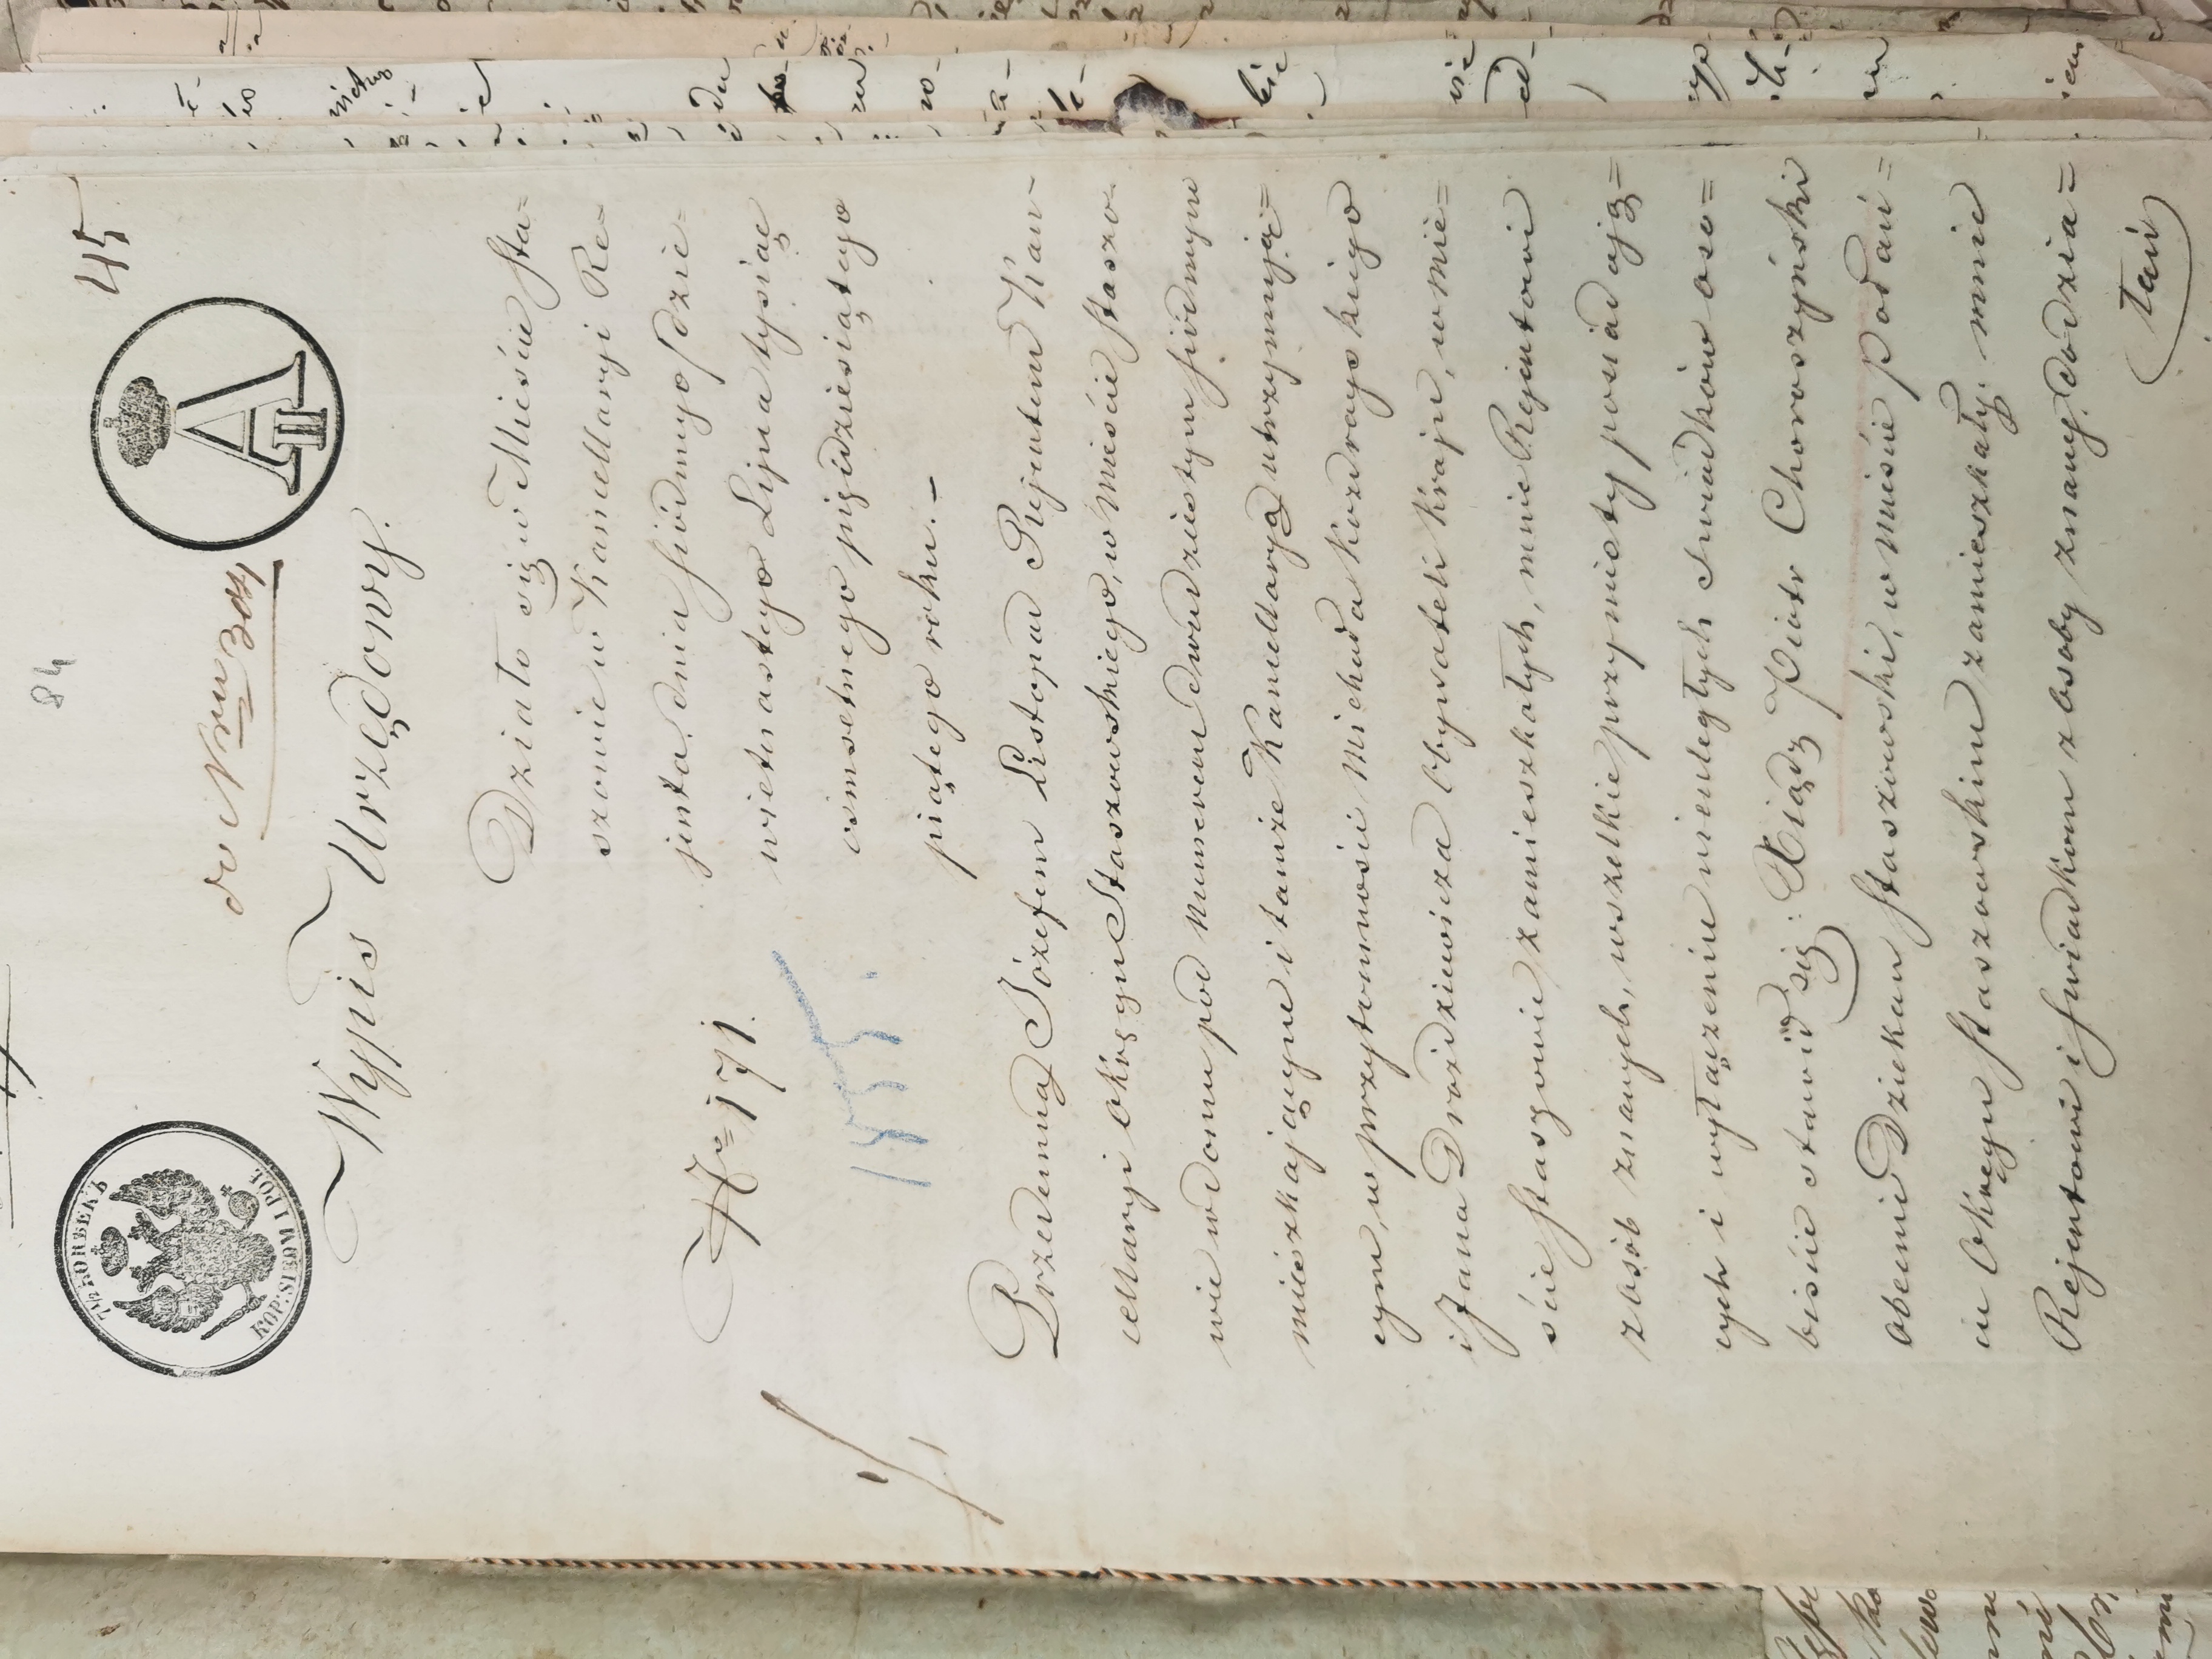 84
45
7½ 30RBEKЪ
KOP: SIEDM I PÓŁ
A II
do Nru 308
Wypis Urzędowy.
Działo się w Mieście Sta=
szowie w Kancellaryi Re=
jenta, dnia siódmego /dzie=
wietnastego Lipca tysiąc
ośmsetnego pięćdziesiątego
piątego roku. —
No 171.
1855.
Przedemną Józefem Listopad Rejentem Kan-
cellaryi Okręgu Staszowskiego, w Mieście Staszo-
wie w domu pod Numerem dwudziestym siódmym
mieszkającym i tamże Kancellaryą utrzymują=
cym, w przytomności Michała Kozdrayskiego
i Jana Drozdziewicza Obywateli Kraju, w mie=
ście Staszowie zamieszkałych, mnie Rejentowi
z Osób znanych, wszelkie przymioty posiadają=
cych i wyłączeniu nieuległych świadków oso=
biście stawił się: Xiądz Piotr Choroszyński
obecnie Dziekan Staszowski, w mieście Połań=
cu Okręgu Staszowskim zamieszkały, mnie
Rejentowi i świadkom z Osoby znany. Do dzia=
łań